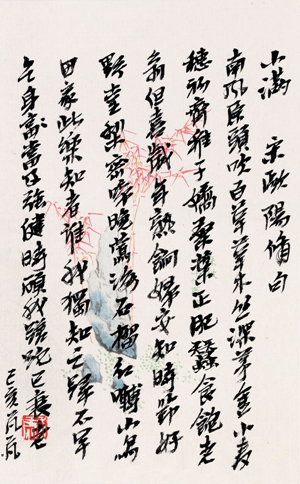 小滿 宋歐陽脩
南風原頭吹百草草木丛深茅舍小麦
穗初齊稚子嬌桑葉正肥蠶食飽老
翁但喜歲年熟餉婦安知時節好
野棠梨密啼晚鶯海石榴紅囀山鳥
田家此樂知者誰我獨知之歸不早
乞身當及強健時顧我蹉跎已衰老
己亥